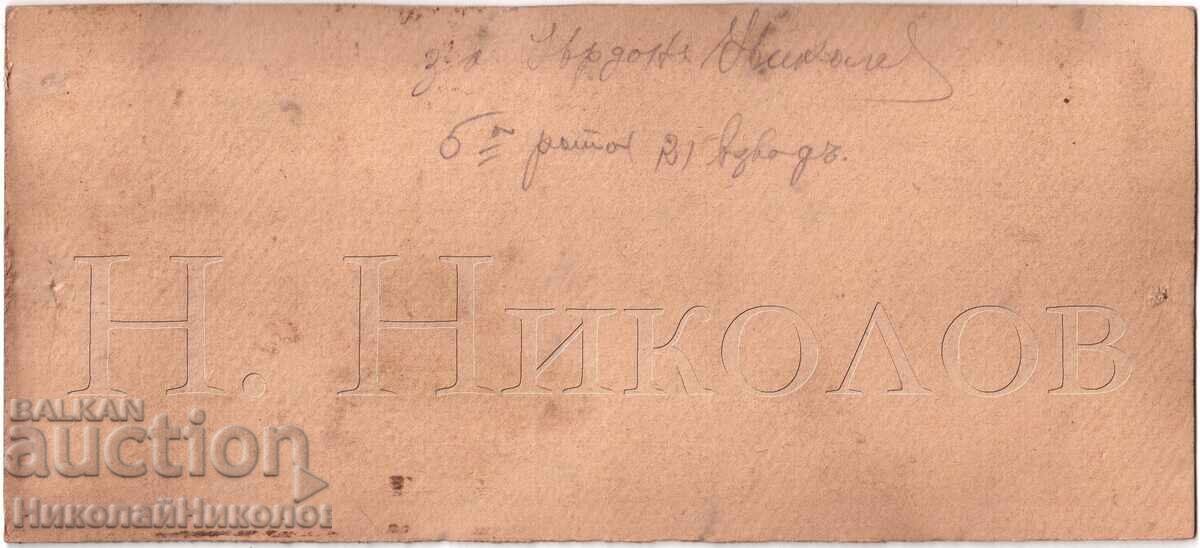 за Йордонъ Николов
5та рота 21 взводъ.
Н. Николов
BALKAN
auction
НиколайНиколов